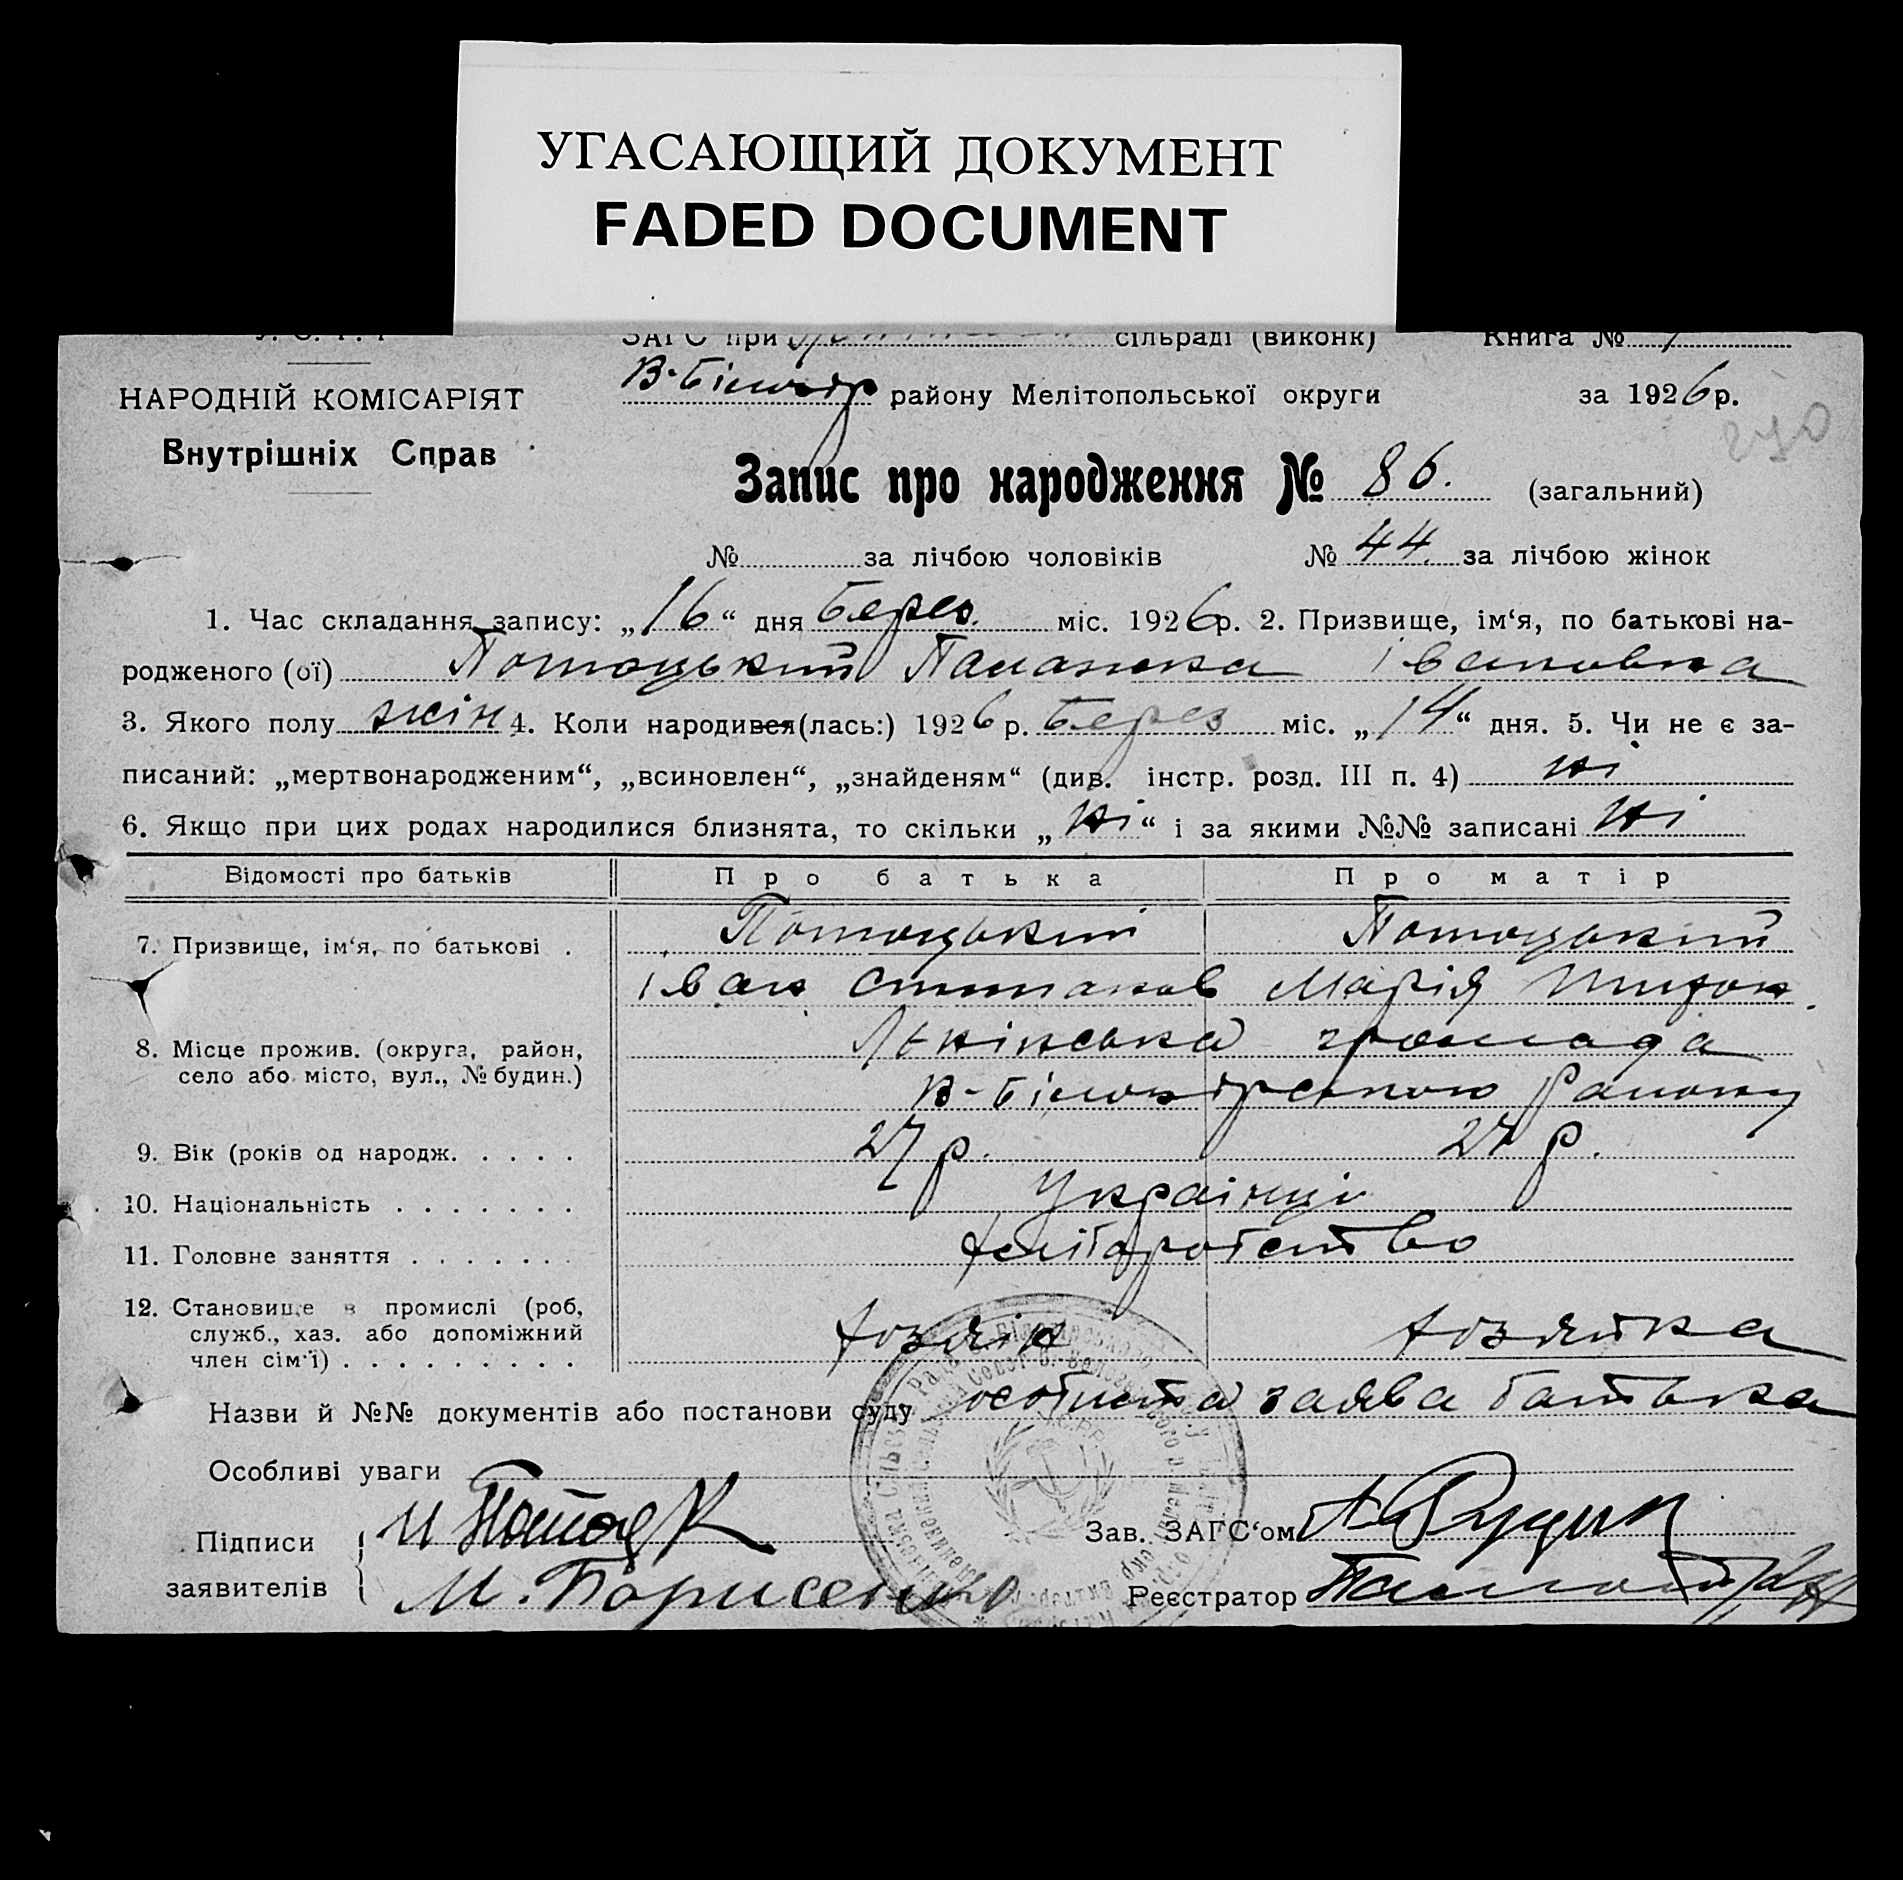 УГАСАЮЩИЙ ДОКУМЕНТ
FADED DOCUMENT
ЗАГС при сільраді (виконк) Книга №
НАРОДНІЙ КОМІСАРІЯТ
Внутрішніх Справ
В-Білозір району Мелітопольської округи за 1926 р.
270
Запис про народження № 86. (загальний)
№ за лічбою чоловіків № 44. за лічбою жінок
1. Час складання запису: „16“ дня Берез. міс. 1926 р. 2. Призвище, ім‘я, по батькові на-
родженого (ої) Потоцький Палажка Івановна
3. Якого полу жін 4. Коли народився (лась:) 1926 р. Берез міс. „14“ дня. 5. Чи не є за-
писаний: „мертвонародженим“, „всиновлен“, „знайденям“ (див. інстр. розд. III п. 4) ні
6. Якщо при цих родах народилися близнята, то скільки „ні“ і за якими №№ записані ні
Відомості про батьків Про батька Про матір
7. Призвище, ім‘я, по батькові . Потоцький Потоцький
Іван Марія
8. Місце прожив. (округа, район, Ленінська громада
село або місто, вул., № будин.) В-Білозірського Району
9. Вік (років од народж. . . . . 27 р. 27 р.
10. Національність . . . . . . . Українці
11. Головне заняття . . . . . . . хліборобство
12. Становище в промислі (роб,
служб., хаз. або допоміжний хозяїн хозяйка
член сім‘ї) . . . . . . . . .
Назви й №№ документів або постанови суду особиста заява батька
Особливі уваги
Підписи Зав. ЗАГС‘ом
заявителів М. Борисенко Реєстратор